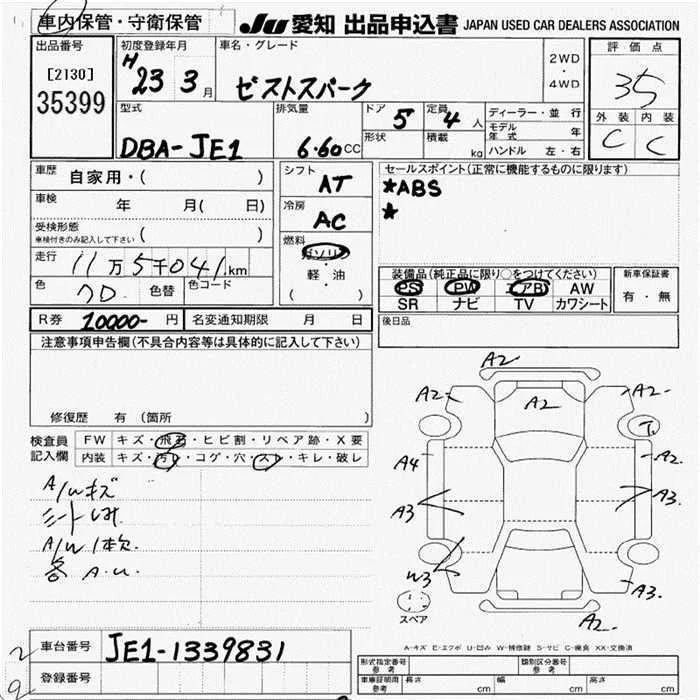 車内保管・守衛保管 JU 愛知 出品申込書 JAPAN USED CAR DEALERS ASSOCIATION
出品番号
[2130]
35399
初度登録年月
H 23 3 月
車名・グレード
ゼストスパーク
2WD
・
4WD
評価点
35
外装 内装
C C
型式
DBA-JE1
排気量
6.60 CC
ドア 5
形状
定員 4 人
積載 kg
ディーラー・並行
モデル年式 年
ハンドル 左・右
車歴 自家用・( )
車検 年 月( 日)
受検形態
車検付きのみ記入して下さい ( )
走行 11万5千041km
色 色替 色コード
シフト
AT
冷房
AC
燃料
ガソリン
・
軽・油
( )
セールスポイント(正常に機能するものに限ります)
*ABS
*
装備品(純正品に限り○をつけてください)
PS PW エアB AW
SR ナビ TV カワシート
新車保証書
有・無
R券 10000- 円 名変通知期限 月 日
後日品
注意事項申告欄(不具合内容等は具体的に記入して下さい)
修復歴 有(箇所 )
検査員記入欄
FW キズ・飛石・ヒビ割・リペア跡・X要
内装 キズ・汚れ・コゲ・穴・スレ・キレ・破レ
A/Wキズ
シートしみ
A/W1本欠
各 A.U.
A2
A2 A2 A2-
A4 A2.
A3 A3.
W3 A3.
A2
スペア
A-キズ E-エクボ U-凹み W-補修跡 S-サビ C-腐食 XX-交換済
車台番号 JE1-1339831
登録番号
形式指定番号 参考 類別区分番号 参考
車庫証明用 参考 長さ cm 幅 cm 高さ cm